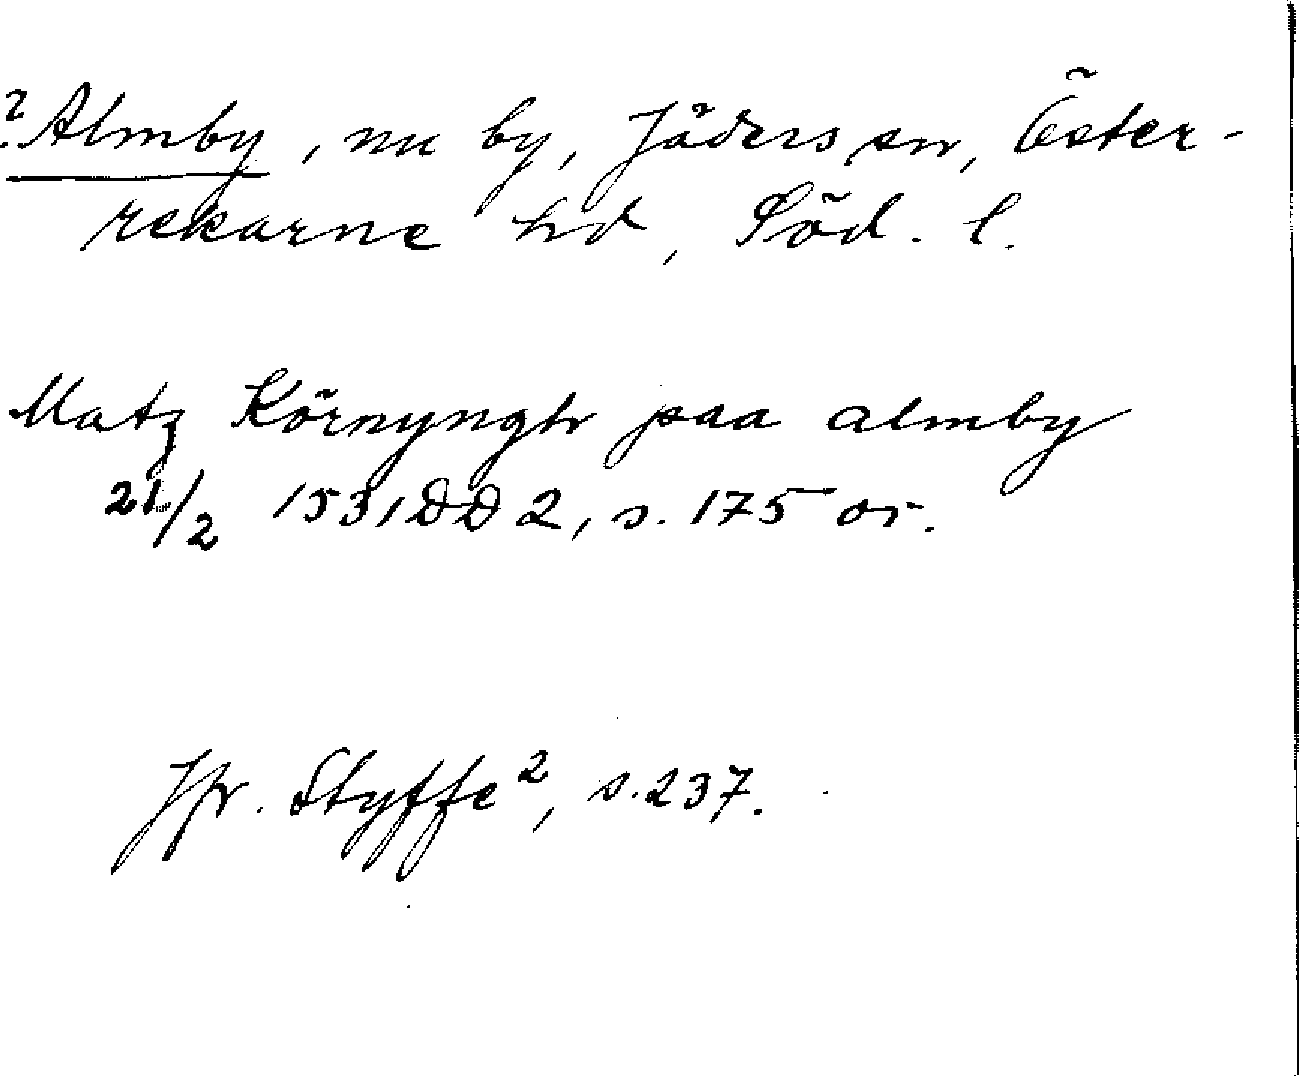 ? Almby, nu by, Jäders sn, Öster-
rekarne hd, Söd. l.
Matz Környngh paa almby
21/2 1531 DD 2, s. 175 or.
Jfr. Styffe², s. 237.